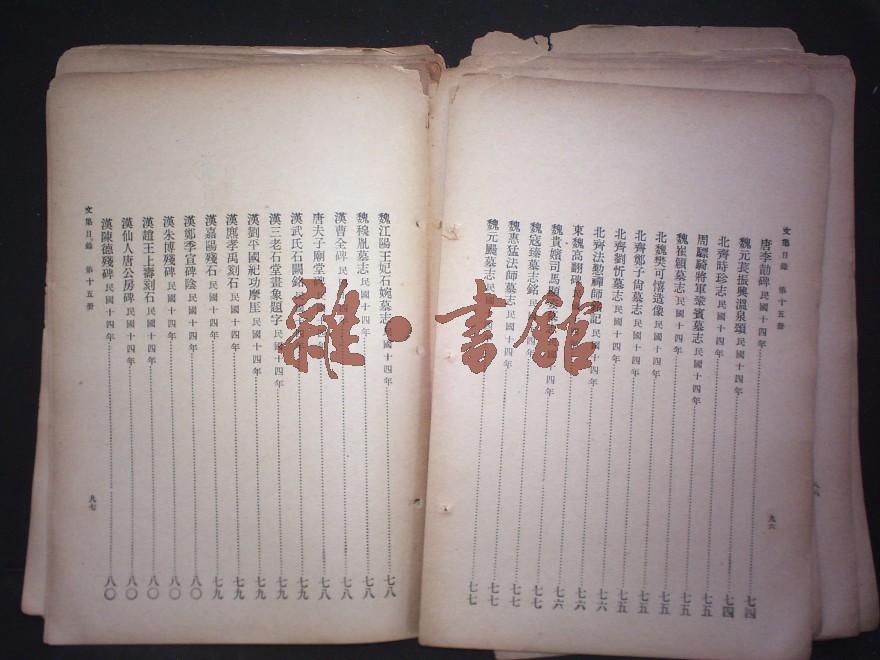 文集目錄 第十五册
唐李勣碑 民國十四年 七四
魏元萇振興溫泉頌 民國十四年 七四
北齊時珍志 民國十四年 七五
周驃騎將軍鞏賓墓志 民國十四年 七五
魏崔頠墓志 民國十四年 七五
北魏樊可憘造像 民國十四年 七五
北齊鄭子尙墓志 民國十四年 七五
北齊劉忻墓志 民國十四年 七六
北齊法懃禪師 記 民國十四年 七六
東魏高翻碑 七六
魏貴嬪司馬 民國十四年 七七
魏寇臻墓志銘 民國十四年 七七
魏惠猛法師墓志 民國十四年 七七
魏元颺墓志 民國十四年 七七
九六
魏江陽王妃石婉墓志 民國十四年 七八
魏穆胤墓志 民國十四年 七八
漢曹全碑 民國十四年 七八
唐夫子廟堂碑 十四年 七八
漢武氏石闕銘 民國十四年 七九
漢三老石堂畫象題字 民國十四年 七九
漢劉平國紀功摩厓 民國十四年 七九
漢應孝禹刻石 民國十四年 七九
漢嘉陽殘石 民國十四年 七九
漢鄭季宣碑陰 民國十四年 八〇
漢朱博殘碑 民國十四年 八〇
漢趙王上壽刻石 民國十四年 八〇
漢仙人唐公房碑 民國十四年 八〇
漢陳德殘碑 民國十四年 八〇
文集目錄 第十五册
九七
雜·書館